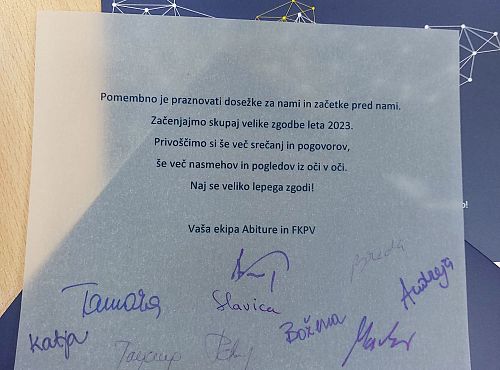 Pomembno je praznovati dosežke za nami in začetke pred nami.
Začenjajmo skupaj velike zgodbe leta 2023.
Privoščimo si še več srečanj in pogovorov,
še več nasmehov in pogledov iz oči v oči.
Naj se veliko lepega zgodi!
Vaša ekipa Abiture in FKPV
Breda
Tamara
Slavica
Andreja
Katja
Božena